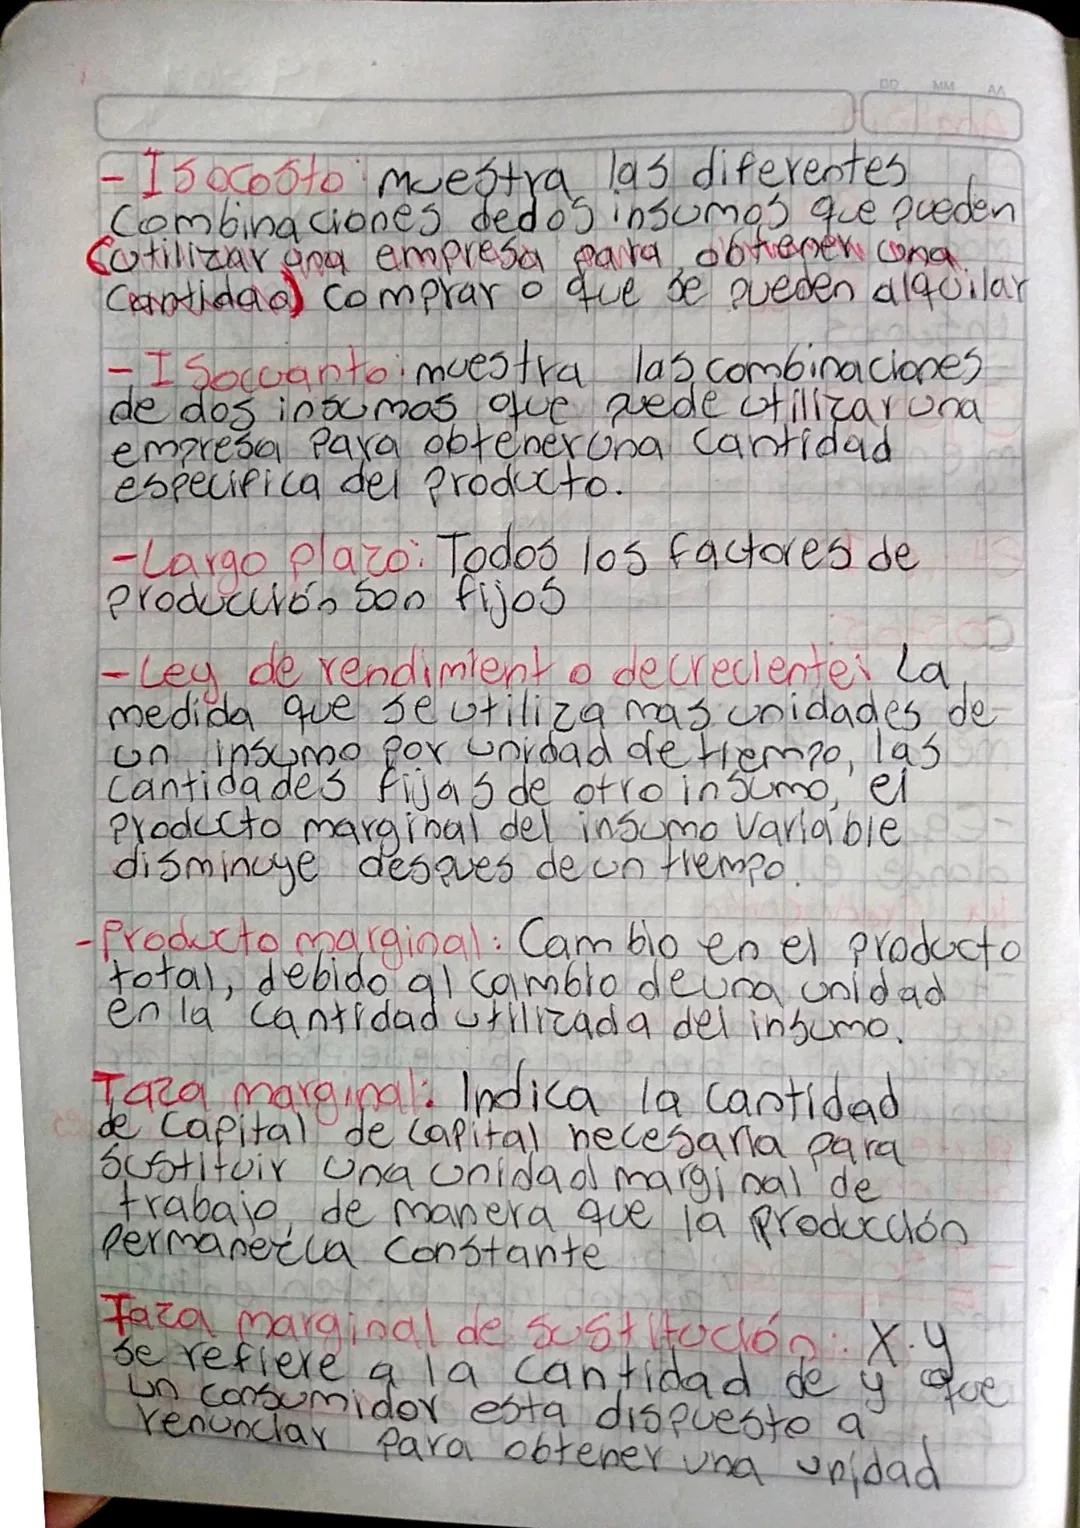 DD MM AA
- Isocosto: muestra las diferentes
Combinaciones dedos insumos que pueden
(utilizar una empresa para obtener una
Cantidad) comprar o que se pueden alquilar
- Isocuanto: muestra las combinaciones
de dos insumos que puede utilizar una
empresa Para obtener una Cantidad
especifica del Producto.
- Largo plazo: Todos los factores de
Producción son fijos
- Ley de rendimiento decreciente: La
medida que se utiliza mas unidades de
un insumo por unidad de tiempo, las
Cantidades fijas de otro insumo, el
Producto marginal del insumo Variable
disminuye despues de un tiempo.
- Producto marginal: Cambio en el Producto
total, debido al cambio de una unidad
en la Cantidad utilizada del insumo.
Taza marginal: Indica la Cantidad
de Capital de Capital necesaria para
Sustituir una unidad marginal de
trabajo, de manera que la Producción
Permanezca Constante
Taza marginal de sustitución: X.y
se refiere a la Cantidad de y que
un Consumidor esta dispuesto a
renunciar Para obtener una unidad